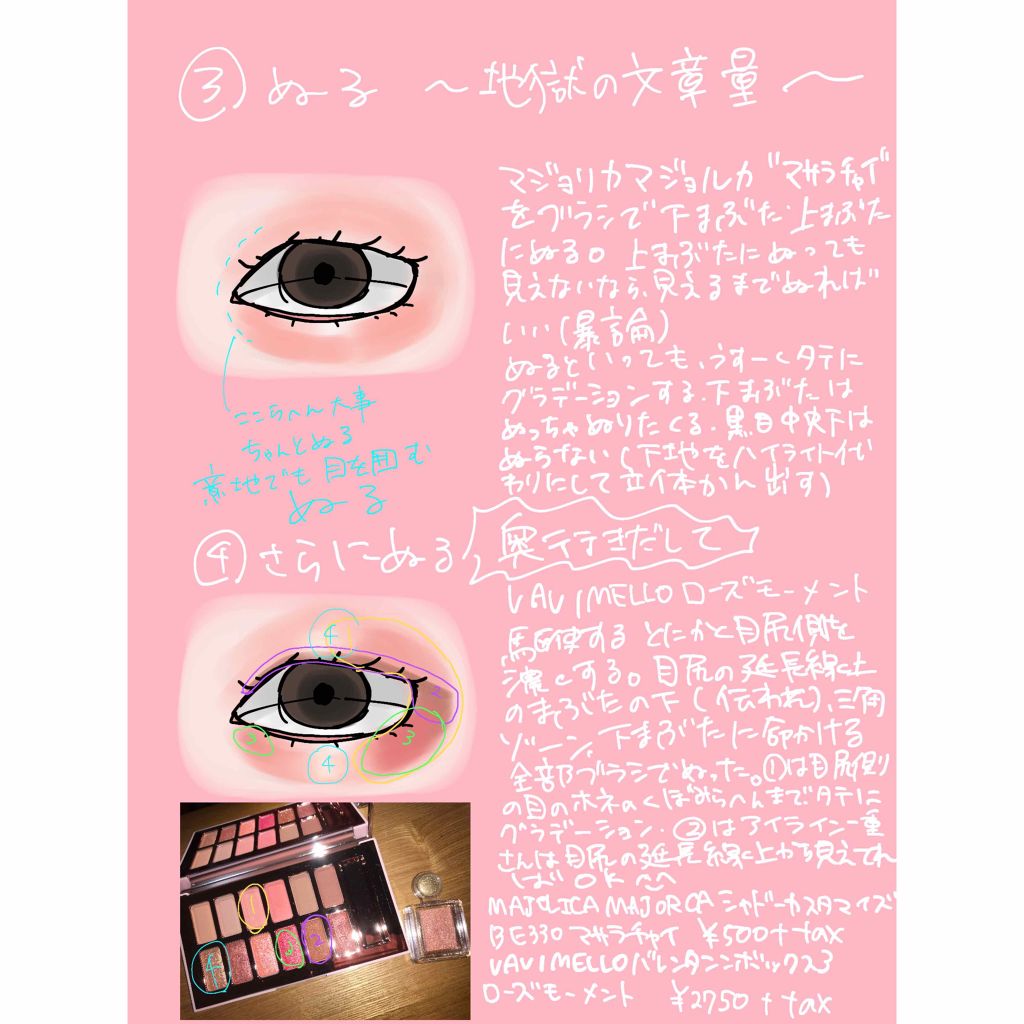 ③ ぬる 〜地獄の文章量〜
マジョリカマジョルカ "マサラチャイ"
をブラシで下まぶた・上まぶた
にぬる。上まぶたにぬっても
見えないなら、見えるまでぬれば
いい(暴論)
ぬるといっても、うすーくタテに
グラデーションする。下まぶたは
めっちゃぬりたくる。黒目中央下は
ぬらない(下地をハイライト代
わりにして立体かん出す)
ここらへん大事
ちゃんとぬる
意地でも目を囲む
ぬる
④ さらにぬる 奥行きだして
VAVIMELLO ローズモーメント
馬区使する とにかく目尻側を
濃くする。目尻の延長線上
のまぶたの下(伝われ)、三角
ゾーン、下まぶたに命かける
全部ブラシでぬった。①は目尻側
の目のホネのくぼみらへんまでタテに
グラデーション。②はアイライン一重
さんは目尻の延長線上から見えてれ
ばOK
MAJOLICA MAJORCA シャドーカスタマイズ
BE330 マサラチャイ ¥500+tax
VAVIMELLO バレンタインボックス3
ローズモーメント ¥2750+tax
4
2
3
3
4
1
3
2
4